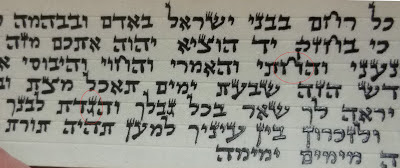 כל רחם בבני ישראל באדם ובבהמה
כי בחזק יד הוציא יהוה אתכם מזה
נעני והחתי והאמרי והחוי והיבוסי א
דש הזה שבעת ימים תאכל מצת וב
יראה לך שאר בכל גבלך והגדת לבנך
ולזכרון בין עיניך למען תהיה תורת
ה מימים ימימה